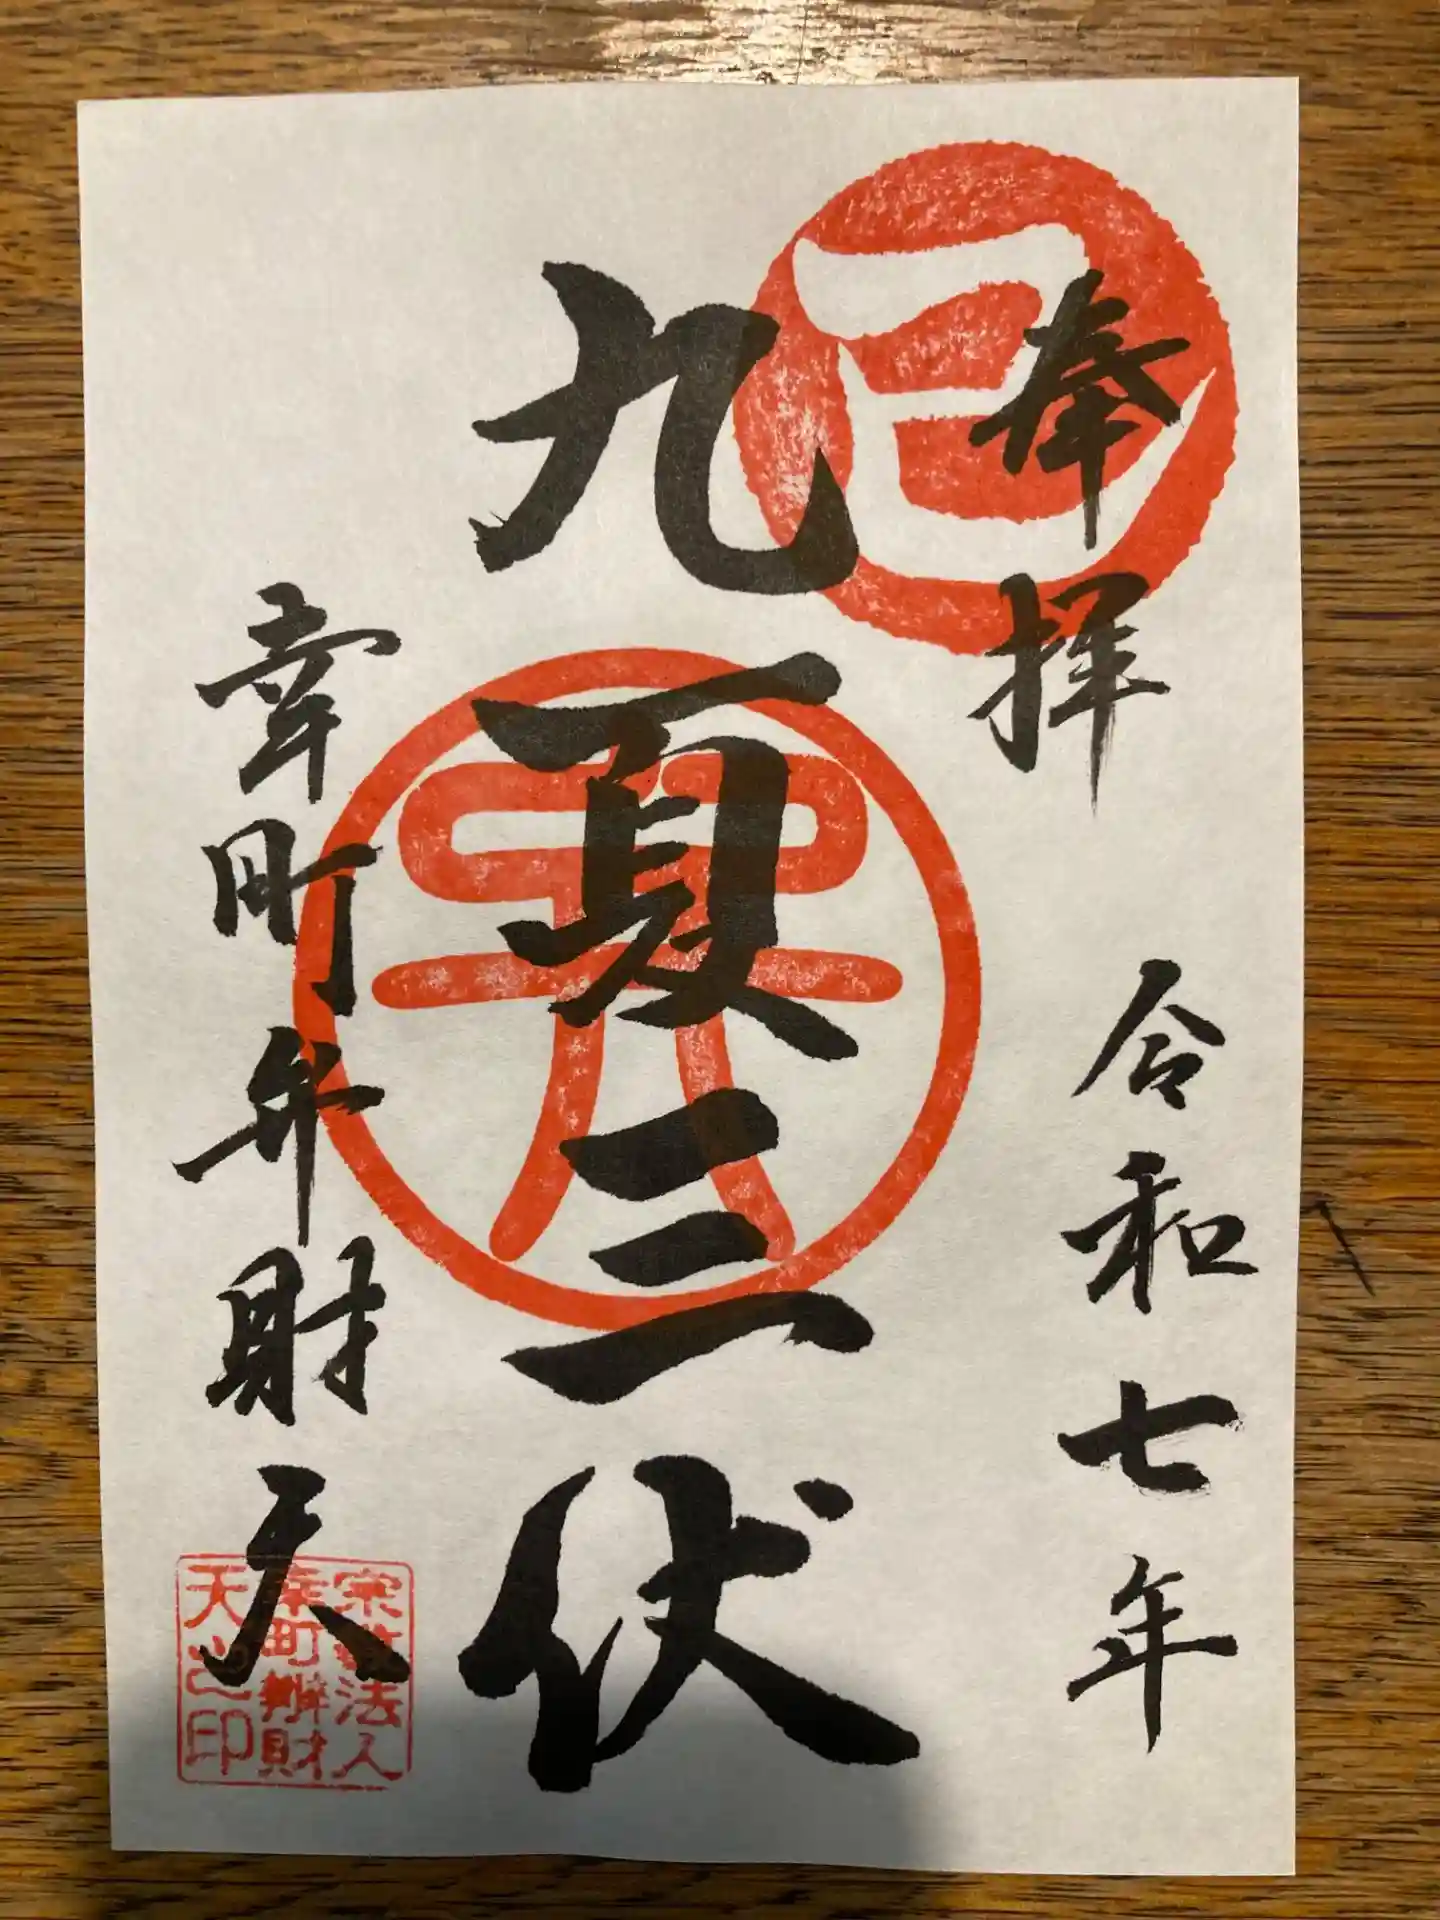 奉拝
令和七年
九夏三伏
幸町弁財天
宗教法人
幸町辨財
天之印
巳